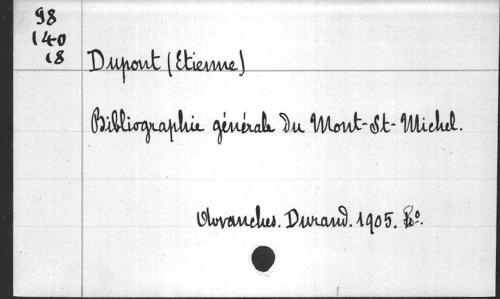 98
140
18
Dupont (Etienne)
Bibliographie générale du Mont-St-Michel.
Avranches. Durand. 1905. 8º.